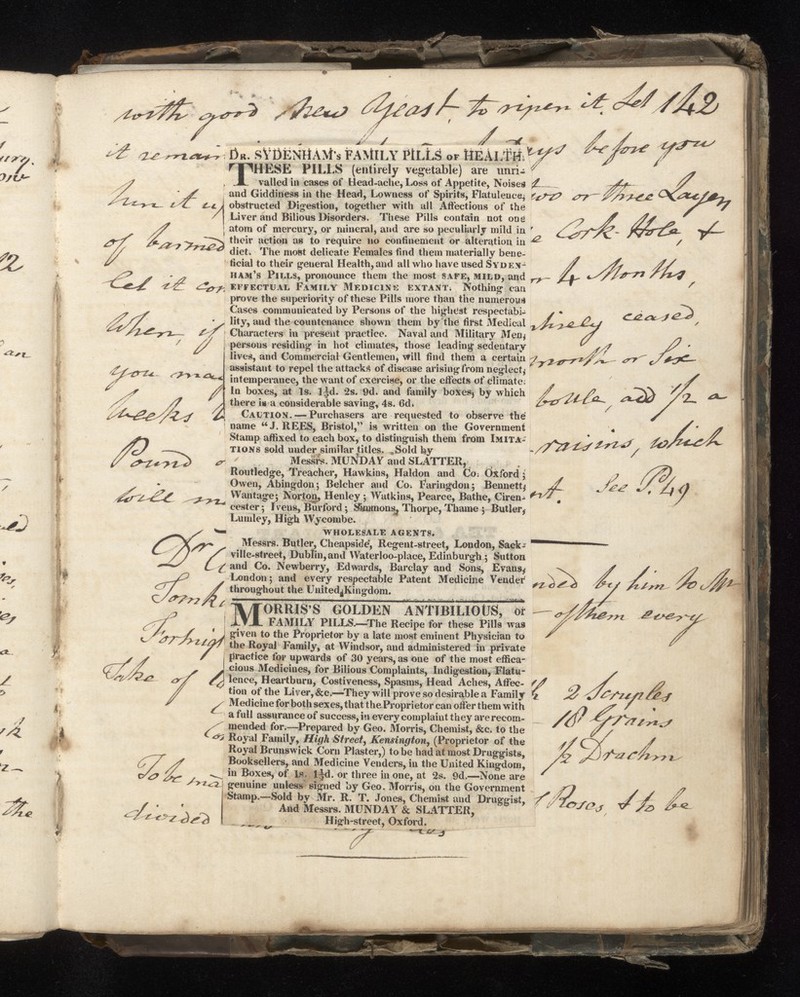 with good New Yeast, to ripen it. Let 142
it remain
ys before you
two or three Layers
of barmed
Cork-Hole, &
let it
4 Months,
When, if
tirely ceased,
you may
month or Six
Weeks
bottle, add 1/2 a
Pound
raisins, which
will
See P. 49
DR. SYDENHAM's FAMILY PILLS OF HEALTH.
THESE PILLS (entirely vegetable) are unri-
valled in cases of Head-ache, Loss of Appetite, Noises
and Giddiness in the Head, Lowness of Spirits, Flatulence,
obstructed Digestion, together with all Affections of the
Liver and Bilious Disorders. These Pills contain not one
atom of mercury, or mineral, and are so peculiarly mild in
their action as to require no confinement or alteration in
diet. The most delicate Females find them materially bene-
ficial to their general Health, and all who have used SYDEN-
HAM'S PILLS, pronounce them the most SAFE, MILD, and
EFFECTUAL FAMILY MEDICINE EXTANT. Nothing can
prove the superiority of these Pills more than the numerous
Cases communicated by Persons of the highest respectabi-
lity, and the countenance shown them by the first Medical
Characters in present practice. Naval and Military Men,
persons residing in hot climates, those leading sedentary
lives, and Commercial Gentlemen, will find them a certain
assistant to repel the attacks of disease arising from neglect,
intemperance, the want of exercise, or the effects of climate.
In boxes, at 1s. 1½d. 2s. 9d. and family boxes, by which
there is a considerable saving, 4s. 6d.
CAUTION. — Purchasers are requested to observe the
name "J. REES, Bristol," is written on the Government
Stamp affixed to each box, to distinguish them from IMITA-
TIONS sold under similar titles. Sold by
Messrs. MUNDAY and SLATTER,
Routledge, Treacher, Hawkins, Haldon and Co. Oxford;
Owen, Abingdon; Belcher and Co. Faringdon; Bennett,
Wantage; Norton, Henley; Watkins, Pearce, Bathe, Ciren-
cester; Ivens, Burford; Simmons, Thorpe, Thame; Butler,
Lumley, High Wycombe.
WHOLESALE AGENTS.
Messrs. Butler, Cheapside, Regent-street, London, Sack-
ville-street, Dublin, and Waterloo-place, Edinburgh; Sutton
and Co. Newberry, Edwards, Barclay and Sons, Evans,
London; and every respectable Patent Medicine Vender
throughout the United Kingdom.
MORRIS'S GOLDEN ANTIBILIOUS, or
FAMILY PILLS.—The Recipe for these Pills was
given to the Proprietor by a late most eminent Physician to
the Royal Family, at Windsor, and administered in private
practice for upwards of 30 years, as one of the most effica-
cious Medicines, for Bilious Complaints, Indigestion, Flatu-
lence, Heartburn, Costiveness, Spasms, Head Aches, Affec-
tion of the Liver, &c.—They will prove so desirable a Family
Medicine for both sexes, that the Proprietor can offer them with
a full assurance of success, in every complaint they are recom-
mended for.—Prepared by Geo. Morris, Chemist, &c. to the
Royal Family, High Street, Kensington, (Proprietor of the
Royal Brunswick Corn Plaster,) to be had at most Druggists,
Booksellers, and Medicine Venders, in the United Kingdom,
in Boxes, of 1s. 1½d. or three in one, at 2s. 9d.—None are
genuine unless signed by Geo. Morris, on the Government
Stamp.—Sold by Mr. R. T. Jones, Chemist and Druggist,
And Messrs. MUNDAY & SLATTER,
High-street, Oxford.
Dr
nded by him to Mr
of them every
Take of
2 Scruples
18 Grains
1/2 Drachm
To be
Roses, & to be
divided
the